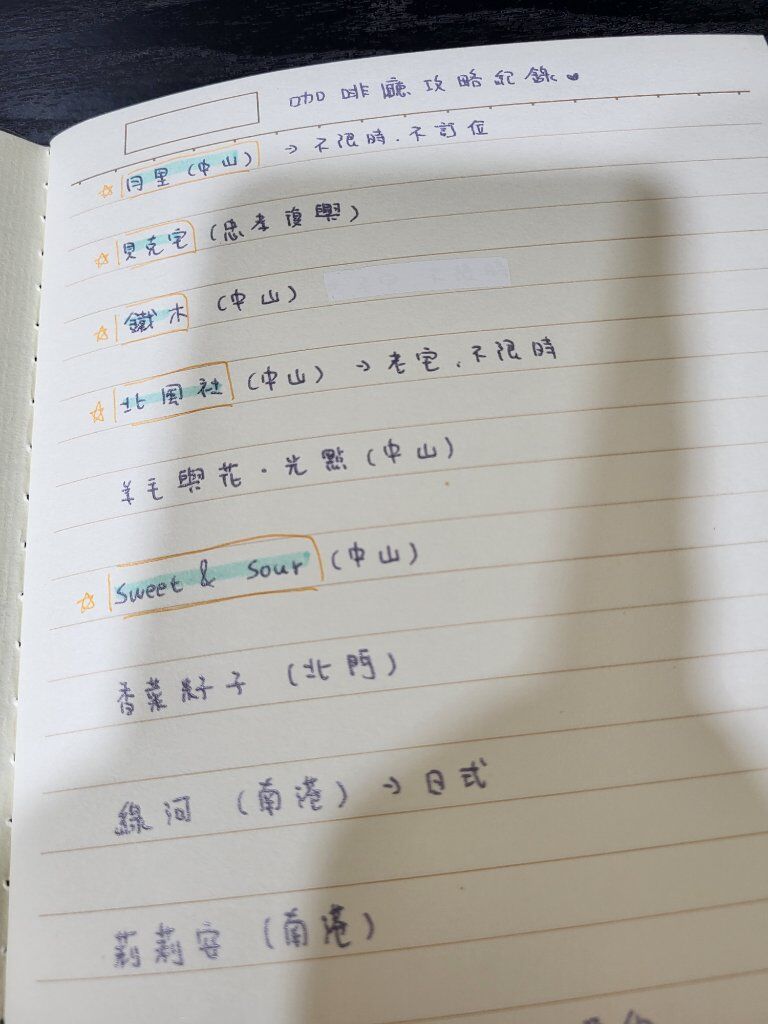 咖啡廳攻略紀錄
☆ 日里(中山) → 不限時.不訂位
☆ 貝克宅(忠孝復興)
☆ 鐵木(中山)
☆ 北風社(中山) → 老宅.不限時
羊毛與花.光點(中山)
☆ Sweet & Sour(中山)
香菜籽子(北門)
線河(南港) → 日式
莉莉安(南港)